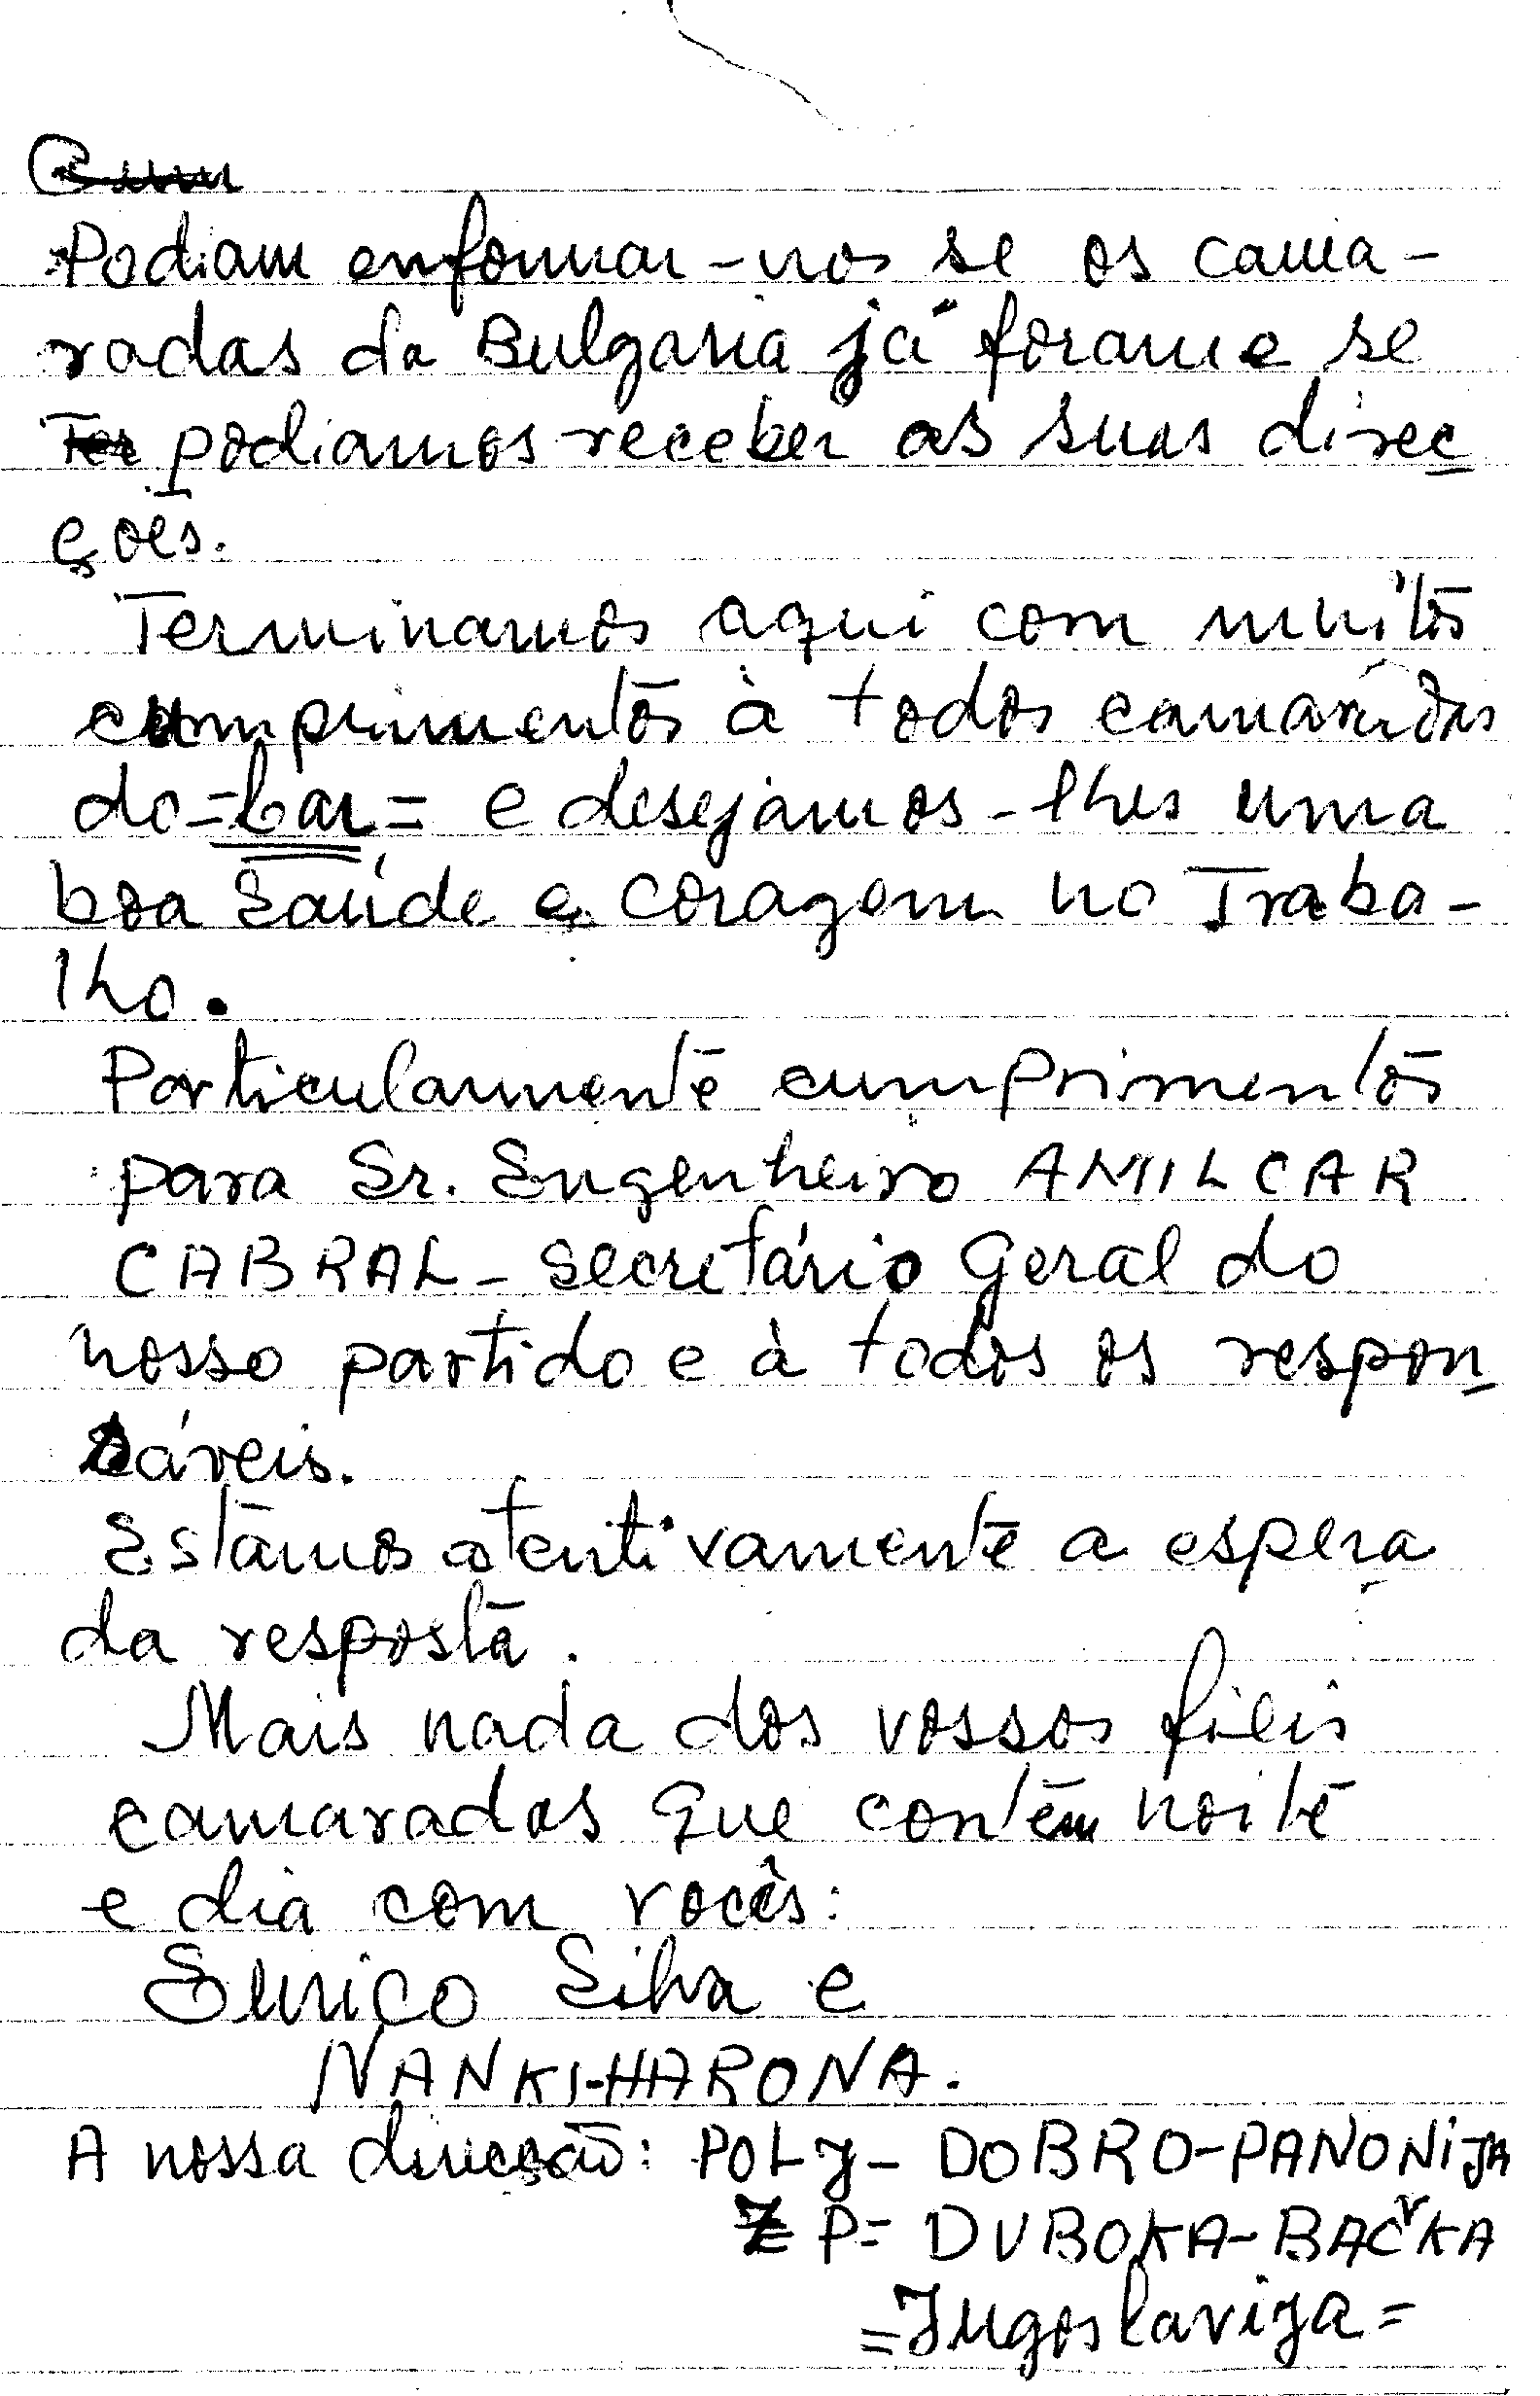 Podiam enformar-nos se os cama-
radas da Bulgaria já foram e se
podiamos receber as suas direc
ções.
Terminamos aqui com muitos
cumprimentos à todos camaradas
do =Lar= e desejamos-lhes uma
boa saúde e coragem no Traba-
lho.
Particularmente cumprimentos
para Sr. Engenheiro AMILCAR
CABRAL - Secretário Geral do
nosso partido e à todos os respon-
sáveis.
Estamos atentivamente a espera
da resposta.
Mais nada dos vossos fieis
camaradas que contêm noite
e dia com vocês:
Eurico Silva e
NANKI-HARONA.
A nossa direcção: POLJ-DOBRO-PANONIJA
Z P= DUBOKA-BAČKA
=Jugoslavija=